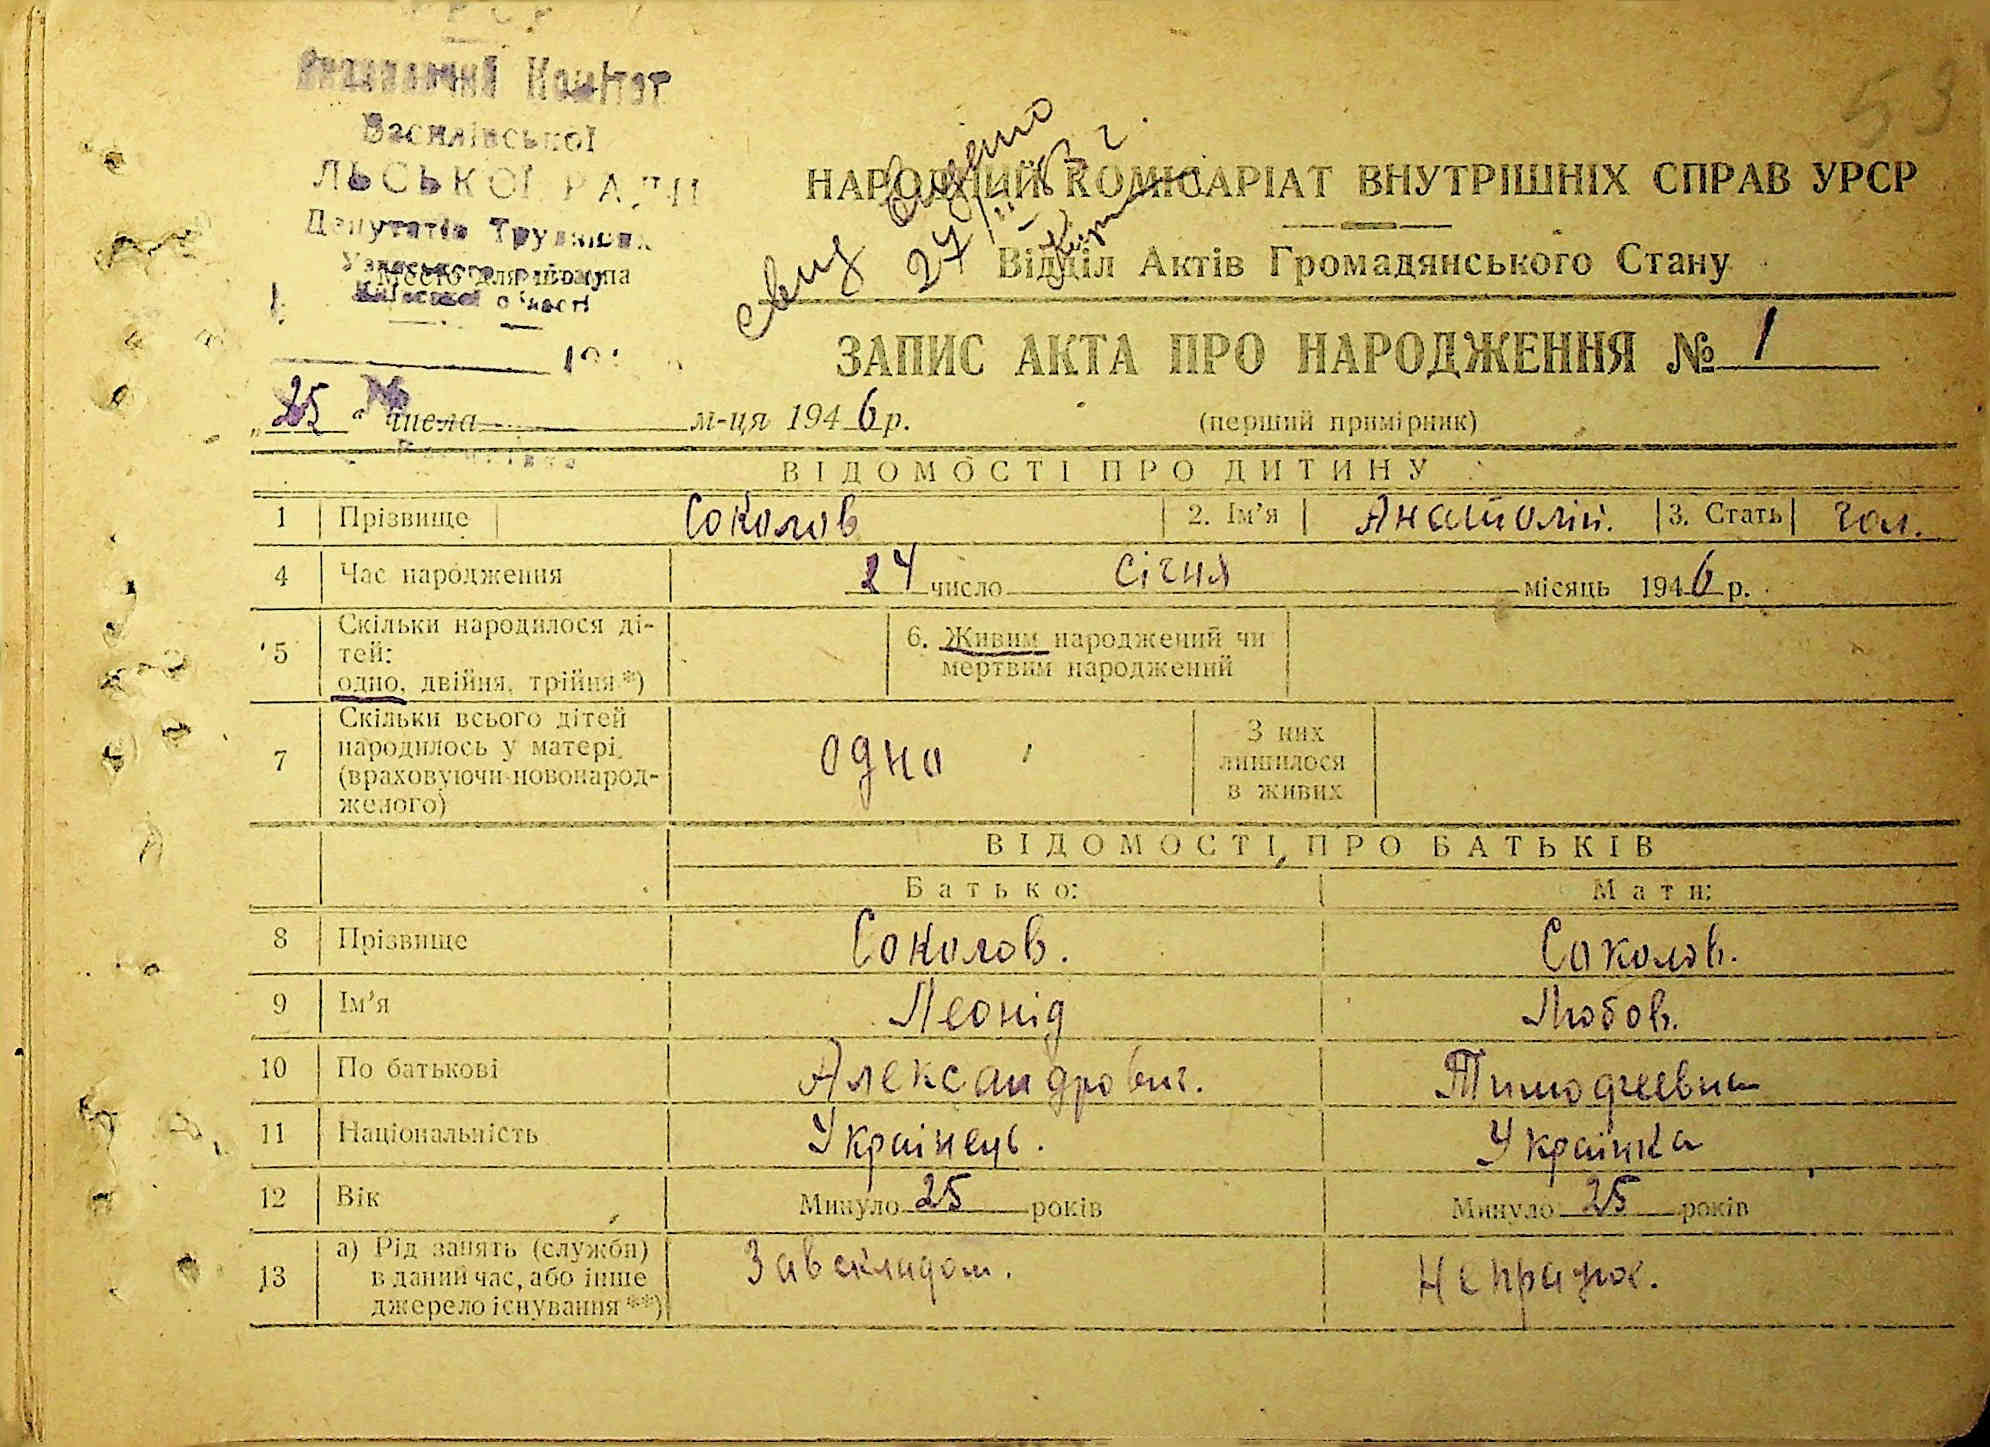 53
Виконавчий Комітет
Василівської
ЛЬСЬКОЇ РАДИ
Депутатів Трудящих
Місто для штампа
Київської області
свид
27/II
НАРОДНИЙ КОМІСАРІАТ ВНУТРІШНІХ СПРАВ УРСР
Відділ Актів Громадянського Стану
ЗАПИС АКТА ПРО НАРОДЖЕННЯ № 1
„25“ числа м-ця 1946 р.
(перший примірник)
ВІДОМОСТІ ПРО ДИТИНУ
1 Прізвище Соколов 2. Ім’я Анатолій. 3. Стать чол.
4 Час народження 24 число січня місяць 1946 р.
5 Скільки народилося ді-
тей:
одно, двійня, трійня *)
6. Живим народжений чи
мертвим народжений
7 Скільки всього дітей
народилось у матері
(враховуючи новонарод-
женого)
одно
З них
лишилося
в живих
ВІДОМОСТІ ПРО БАТЬКІВ
Батько: Мати:
8 Прізвище Соколов. Соколов.
9 Ім’я Леонід Любов.
10 По батькові Александрович. Тимофеевна
11 Національність Українець. Українка
12 Вік Минуло 25 років Минуло 25 років
13 а) Рід занять (служби)
в даний час, або інше
джерело існування **)
Завскладом.